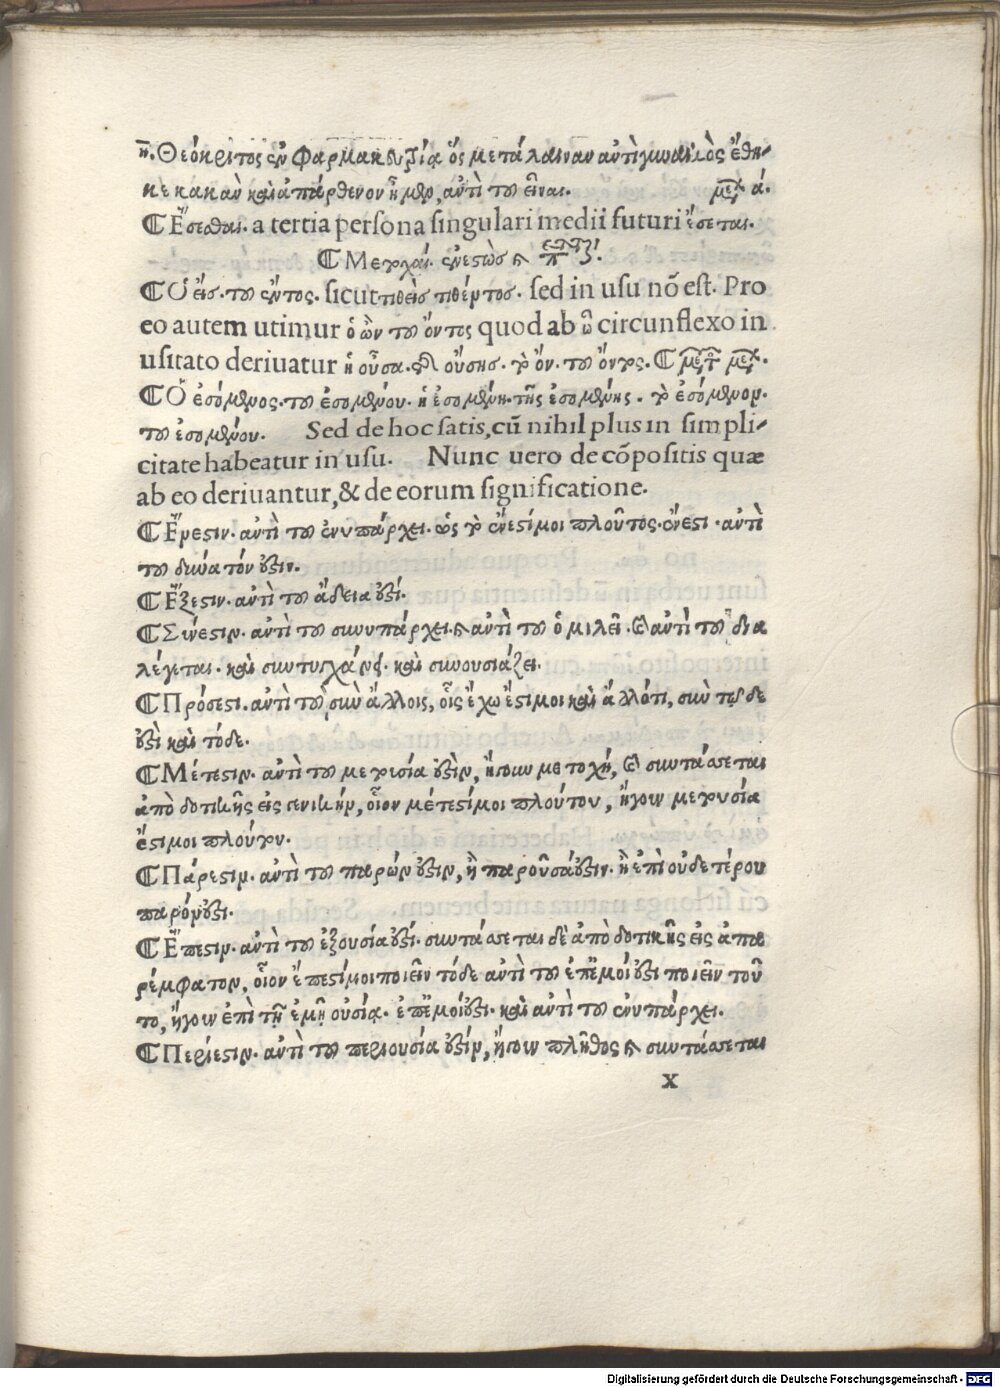 η. Θεόκριτος ἐν Φαρμακευτρίᾳ ὅς με τάλαιναν ἀντὶ γυναικὸς ἔθη-
κε κακὰν καὶ ἀπάρθενον ἦμεν, ἀντὶ τοῦ εἶναι. ά.
¶ Ἔσεσθαι. a tertia persona singulari medii futuri ἔσεται.
¶ Μετοχαί. ἐνεστὼς καὶ
¶ Ὁ εἰς. τοῦ ἐντος. sicut τιθεὶς τιθέντος. sed in usu nõ est. Pro
eo autem utimur ὁ ὢν τοῦ ὄντος quod ab ῶ circunflexo in
usitato deriuatur ἡ οὖσα. τῆς οὔσης. τὸ ὄν. τοῦ ὄντος. ¶
¶ Ὁ ἐσόμενος. τοῦ ἐσομένου. ἡ ἐσομένη. τῆς ἐσομένης. τὸ ἐσόμενον.
τοῦ ἐσομένου. Sed de hoc satis, cũ nihil plus in simpli-
citate habeatur in usu. Nunc uero de cõpositis quæ
ab eo deriuantur, & de eorum significatione.
¶ Ἔνεστιν. ἀντὶ τοῦ ἐνυπάρχει. ὡς τὸ ἔνεστί μοι πλοῦτος. ἔνεστι. ἀντὶ
τοῦ δυνατόν ἐστιν.
¶ Ἔξεστιν. ἀντὶ τοῦ ἄδεια ἐστί.
¶ Σύνεστιν. ἀντὶ τοῦ συνυπάρχει καὶ ἀντὶ τοῦ ὁμιλεῖ. καὶ ἀντὶ τοῦ δια
λέγεται. καὶ συντυγχάνει. καὶ συνουσιάζει.
¶ Πρόσεστι. ἀντὶ τοῦ σὺν ἄλλοις, οἷς ἔχω ἔστί μοι καὶ ἄλλό τι, σὺν τῷδε
ἐστὶ καὶ τόδε.
¶ Μέτεστιν. ἀντὶ τοῦ μερισία ἐστὶν, ἤγουν μετοχή, καὶ συντάσσεται
ἀπὸ δοτικῆς εἰς γενικήν, οἷον μέτεστί μοι πλούτου, ἤγουν μερισία
ἔστί μοι πλούτου.
¶ Πάρεστιν. ἀντὶ τοῦ παρών ἐστιν, ἢ παροῦσά ἐστιν. ἢ ἐπὶ οὐδετέρου
παρόν ἐστι.
¶ Ἔπεστιν. ἀντὶ τοῦ ἐξουσία ἐστί. συντάσσεται δὲ ἀπὸ δοτικῆς εἰς ἀπα
ρέμφατον, οἷον ἔπεστί μοι ποιεῖν τόδε ἀντὶ τοῦ ἐπ' ἐμοί ἐστι ποιεῖν τοῦ
το, ἤγουν ἐπὶ τῇ ἐμῇ οὐσίᾳ. ἐπ' ἐμοί ἐστι. καὶ ἀντὶ τοῦ ἐνυπάρχει.
¶ Περίεστιν. ἀντὶ τοῦ περιουσία ἐστίν, ἤγουν πλῆθος καὶ συντάσσεται
x
Digitalisierung gefördert durch die Deutsche Forschungsgemeinschaft - DFG